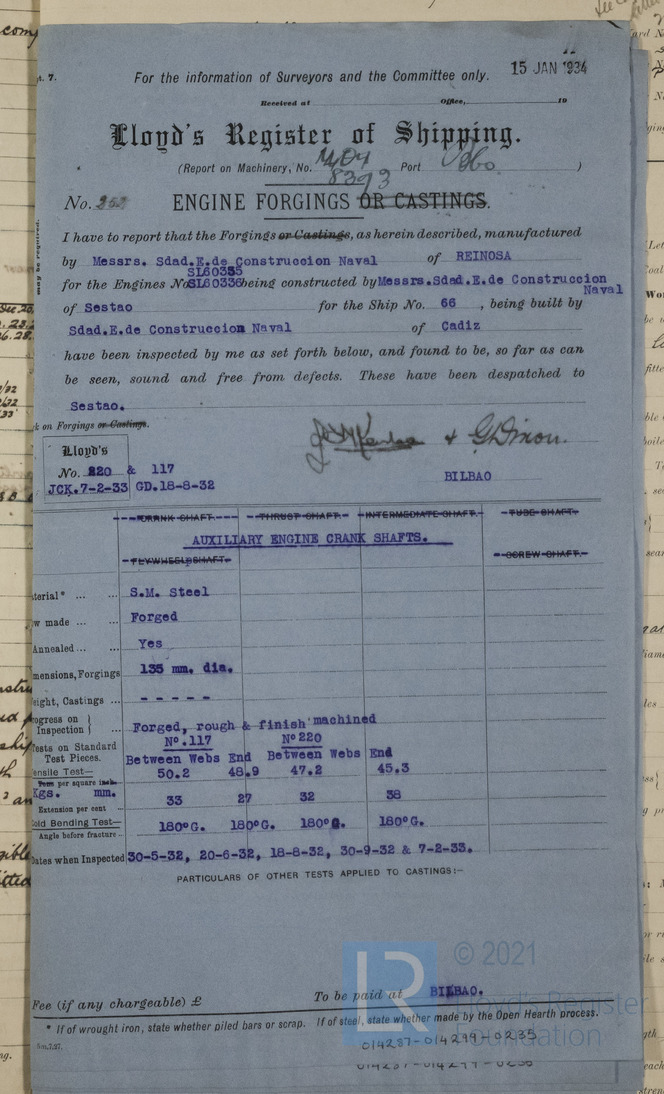 15 JAN 1934
For the information of Surveyors and the Committee only.
Received at Office, 19
Lloyd's Register of Shipping.
(Report on Machinery, No. 8393 Port Bbo. )
No. ENGINE FORGINGS OR CASTINGS.
I have to report that the Forgings or Castings, as herein described, manufactured
by Messrs. Sdad.E.de Construccion Naval of REINOSA
SL60335
for the Engines No. SL60336 being constructed by Messrs.Sdad.E.de Construccion Naval
of Sestao for the Ship No. 66 , being built by
Sdad.E.de Construccion Naval of Cadiz
have been inspected by me as set forth below, and found to be, so far as can
be seen, sound and free from defects. These have been despatched to
Sestao.
k on Forgings or Castings.
Lloyd's
No. 220 & 117
JCK.7-2-33 GD.18-8-32
& G Dixon.
BILBAO
CRANK SHAFT. THRUST SHAFT. INTERMEDIATE SHAFT. TUBE SHAFT.
AUXILIARY ENGINE CRANK SHAFTS.
FLYWHEEL SHAFT. SCREW SHAFT.
terial* ... ... S.M. Steel
w made ... ... Forged
Annealed ... ... Yes
mensions, Forgings 135 mm. dia.
eight, Castings ... - - - - -
ogress on Inspection } ... Forged, rough & finish machined
Nº.117 Nº220
ests on Standard Test Pieces. Between Webs End Between Webs End
ensile Test— 50.2 48.9 47.2 45.3
Tons per square inch.
Kgs. mm.
Extension per cent ... 33 27 32 38
old Bending Test— 180ºG. 180ºG. 180ºG. 180ºG.
Angle before fracture ...
Dates when Inspected 30-5-32, 20-6-32, 18-8-32, 30-9-32 & 7-2-33.
PARTICULARS OF OTHER TESTS APPLIED TO CASTINGS:—
© 2021
Lloyd's Register
Foundation
Fee (if any chargeable) £ To be paid at BILBAO.
* If of wrought iron, state whether piled bars or scrap. If of steel, state whether made by the Open Hearth process.
5m.7.27.
014287-014299-0235